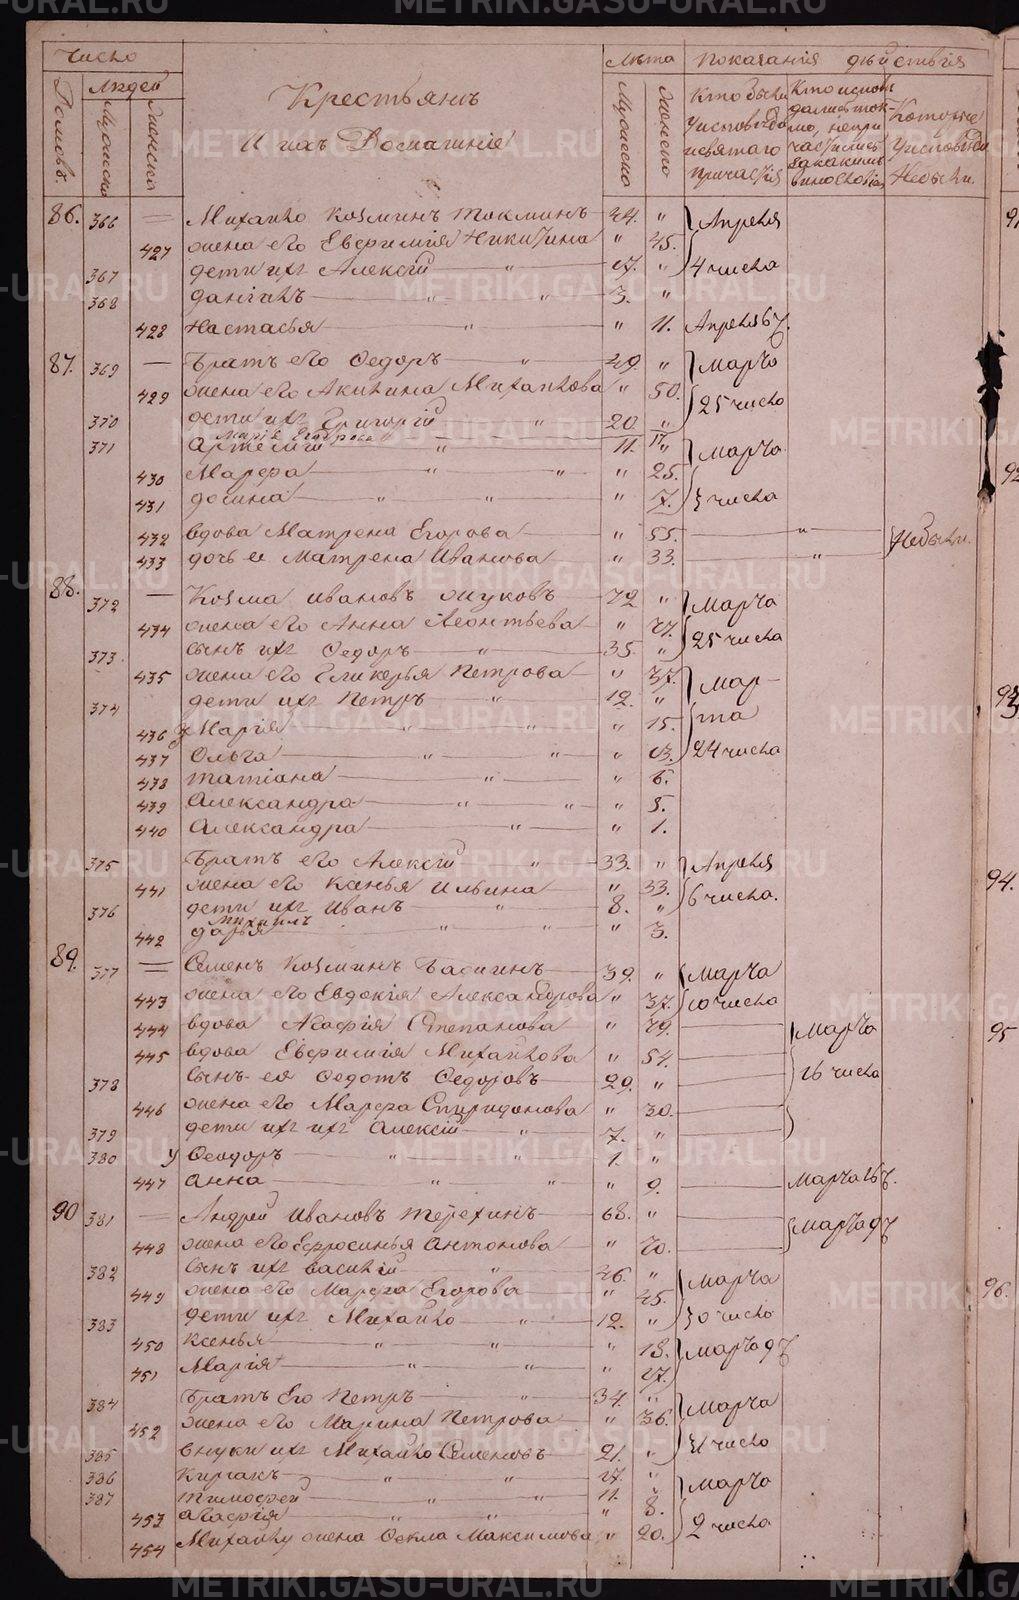 METRIKI.GASO-URAL.RU
Число
Лѣта
Показанія дѣйствія
Домовъ.
Людей
Мужеско
Женско
Крестьянъ
И ихъ Домашніе
Мужеско
Женско
Кто были у исповѣди и святаго причастія
Кто исповѣдались токмо, не причастились
Которые у исповѣди не были.
86. 366 — Михайло Козминъ Токминъ 44. " Апреля
427 жена его Евфимія Никитина " 45.
367 дети ихъ Алексѣй " 17. " 4 числа
368 Даніилъ " " 3. "
428 Настасья " " 11. Апреля 6 ч.
87. 369 — Братъ его Федоръ " 49. " Марта
429 жена его Акилина Михайлова " 50. 25 число
370 дети ихъ Григорій " 20. "
Марія Егорова 17.
371 Артемій " 11. " Марта
430 Марфа " " " 25.
431 Досина " " " 7. 3 числа
432 вдова Матрена Егорова " 55. " Небыли.
433 дочь ея Матрена Иванова " 33. "
88. 372 — Козма Ивановъ Жуковъ 72 " Марта
434 жена его Анна Леонтьева " 77. 25 числа
373 сынъ ихъ Федоръ " 35. "
435 жена его Гликерья Петрова " 37. Мар-
374 дети ихъ Петръ " 12. "
436 у Марія " " " 15. та
437 Ольга " " " 13. 24 числа
438 Татіана " " 6.
439 Александра " " " 5.
440 Александра " " 1.
375 Братъ его Алексѣй " 33. " Апреля
441 жена его Ксенья Ильина " 33. 6 числа.
376 дети ихъ Иванъ " 8. "
Михаилъ
442 Дарья " " " 3.
89. 377 — Семенъ Козминъ 39. " Марта
443 жена его Евдокія Александрова " 37. 10 числа
444 вдова Агафія Степанова " 79. Марта
445 вдова Евфимія Михайлова " 54.
378 сынъ ея Федотъ Федоровъ 29. " 16 числа
446 жена его Марфа Спиридонова " 30.
379 дети ихъ ихъ Алексій " 7. "
380 у Феодоръ " " 1. "
447 Анна " " " 9. Марта 16 ч.
90 381 — Андрей Ивановъ Терехинъ 68. " Марта 9 ч
448 жена его Ефросинья Антонова " 70.
382 сынъ ихъ Василій " 46. " Марта
449 жена его Марфа Егорова " 45.
383 дети ихъ Михайло " 12. " 30 число
450 Ксенья " " " 18. Марта 9 ч
451 Марія " " " 17.
384 Братъ Его Петръ " 34. " Марта
452 жена его Марина Петрова " 36.
385 внуки ихъ Михайло Семеновъ 21. " 31 число
386 Кирілъ " " 17. " Марта
387 Тимофей " " 11. "
453 Агафія " " " 8. 2 числа
454 Михайлу жена Фекла Максимова " 20.
91
92
93
94.
95
96.